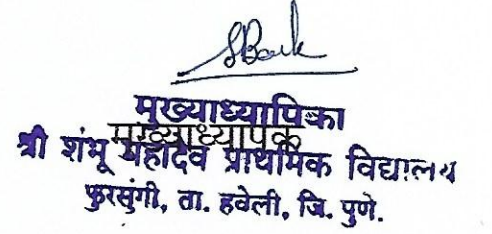 मुख्याध्यापिका
मुख्याध्यापक
श्री शंभू महादेव प्राथमिक विद्यालय
फुरसुंगी, ता. हवेली, जि. पुणे.